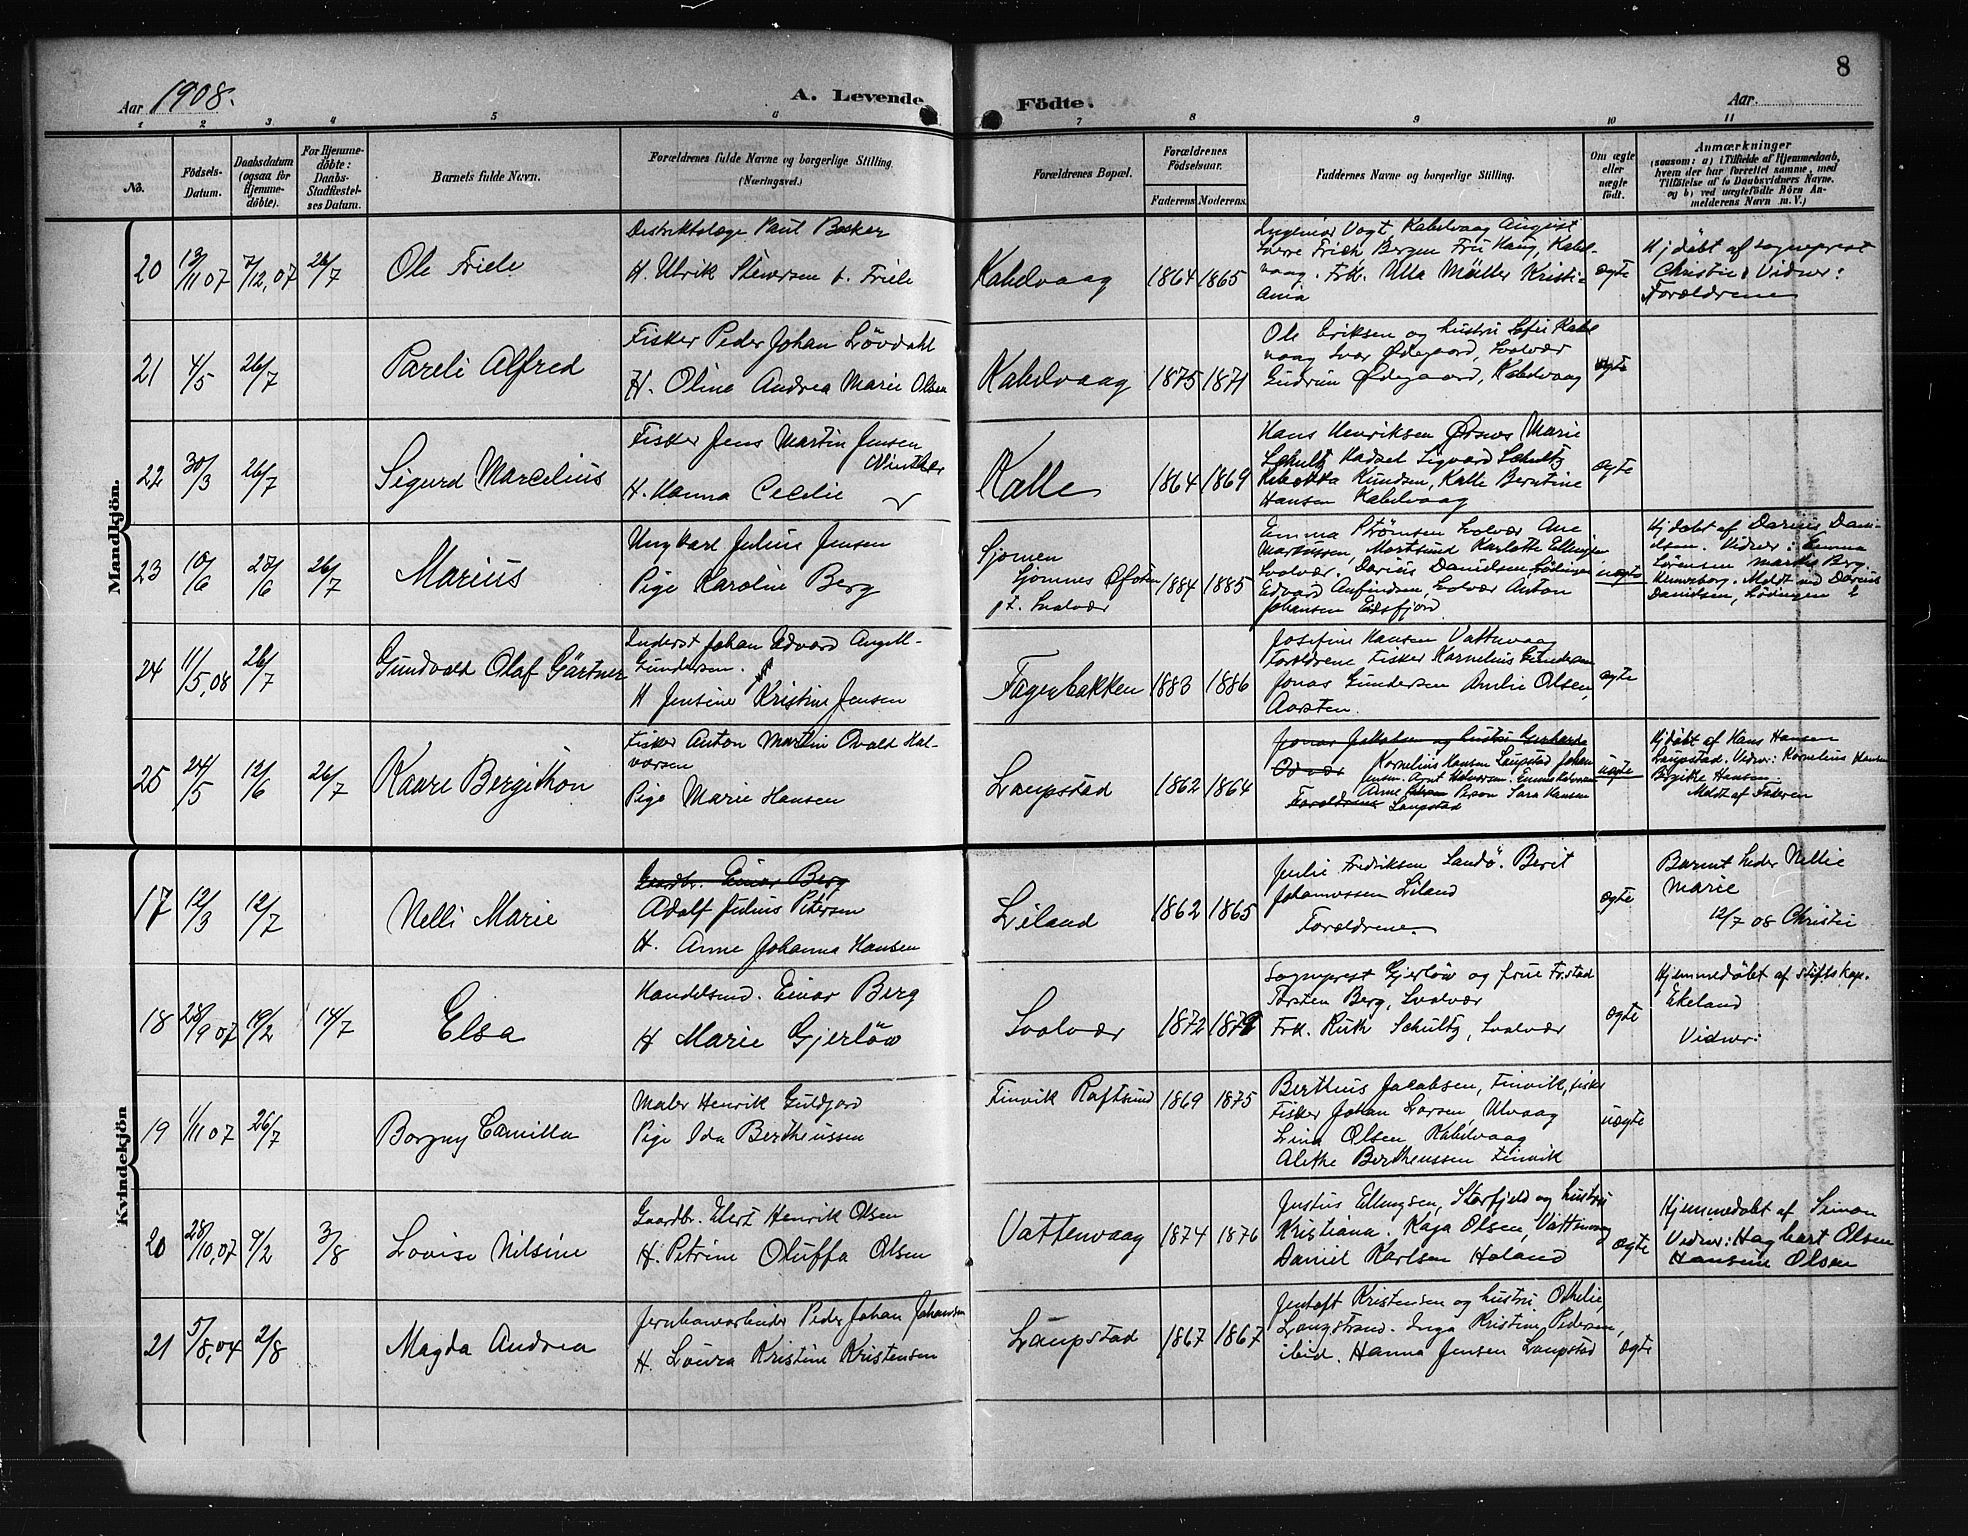 8
Aar 1908. A. Levende Födte. Aar
1 2 3. 4 5 6 7 8 9 10 11
No. Födsels-Datum. Daabsdatum (ogsaa for Hjemme-döbte). For Hjemme-döbte: Daabs-Stadfæstel-ses Datum. Barnets fulde Navn. Forældrenes fulde Navne og borgerlige Stilling. (Næringsvei.) Forældrenes Bopæl. Forældrenes Födselsaar. Faderens Moderens. Faddernes Navne og borgerlige Stilling. Om ægte eller uægte födt. Anmærkninger (saasom: a) i Tilfælde af Hjemmedaab, hvem der har forrettet samme, med Tilföielse af to Daabsvidners Navne. og b) ved uægtefödte Börn An-melderens Navn m. V.)
Mandkjön.
20 13/11 07 7/12,07 26/7 Ole Friele
Distriktslæge Paul
H. Ulrik f. Friele
Kabelvaag 1864 1865
Ingeniör Vogt Kabelvaag August
Bergen Fru Haug, Kabel-
vaag. Frk. Ulla Müller Kristi-
ania
ægte
Hj döbt af sogneprest
Christie. Vidner:
Forældrene
21 4/5 26/7 Pareli Alfred
Fisker Peder Johan Lövdahl
H. Oline Andrea Marie Olsen
Kabelvaag 1875 1871
Ole Eriksen og hustru Sofie Kabel
vaag Ivar Ødegaard, Svolvær
Gudrun Ødegaard, Kabelvaag
ægte
22 30/3 26/7 Sigurd Marcelius
Fisker Jens Martin Jensen
Winther
H. Hanna Cecelie
Kalle 1864 1869
Hans Henriksen Ørsnes Marie
Schultz Hadsel Sigvard Schultz
Rebekka Knudsen, Kalle Berntine
Hansen Kabelvaag
ægte
23 10/6 27/6 26/7 Marius
Ungkarl Julius Jensen
Pige Karoline Berg
Gjomnes Ofoten
pt. Svolvær
1884 1885
Emma Strømsen Svolvær Ane
Martinssen, Mortsund Karlotte Ellingsen
Svolvær. Darius Danielsen, Lödingen
Edvard Anfindsen, Svolvær Anton
Johansen Eidsfjord
uægte
Hj döbt af Darius Dani-
elsen. Vidner: Emma
Sörensen Martha Berg.
Henneborg. Meldt ved Darius
Danielsen, Lödingen
24 11/5,08 26/7 Gundvald Olaf Gärtner
Inderst Johan Edvard Angell-
Gundersen.
H Jensine Kristine Jensen
Fagerbakken 1883 1886
Josefine Hansen Vattervaag
Forældrene Fisker Kornelius Gundersen
Jonas Gundersen Amelie Olsen,
Aarsten.
ægte
25 24/5 12/6 26/7 Kaare Bergithon
Fisker Anton Martin Ovald Hal-
vorsen
Pige Marie Hansen
Laupstad 1862 1864
Jonas Jakobsen og hustru Gerharda
Kornelius Hansen Laupstad Johan
Jensen. Arnt Halvorsen. Emma Halvorsen
Anne Person Sara Hansen
Forældrene Laupstad
uægte
Hj döbt af Hans Hansen
Laupstad. Vidner: Kornelius Hansen
Birgitte Hansen
Meldt af Faderen
Kvindekjön
17 12/3 12/7 Nelli Marie
Gaardbr. Einar Berg
Adolf Julius Petersen
H. Anne Johanna Hansen
Liland 1862 1865
Julie Fredriksen Sandö. Berit
Johannesen Liland
Forældrene
ægte
Barnet heder Nellie
Marie
12/7 08 Christie
18 28/9 07 19/2 14/7 Elsa
Handelsmd. Einar Berg
H Marie Gjerlöw
Svolvær 1872
Sogneprest Gjerlöw og frue
Torsten Berg, Svolvær
Frk. Ruth Schultz, Svolvær
ægte
Hjemmedöbt af stiftskap.
Ekeland
Vidner:
19 1/11 07 26/7 Borgny Camilla
Maler Henrik Guldjord
Pige Ida Bertheussen
Finvik Raftsund 1869 1875
Bertheus Jacobsen, Finvik, fisker
Fisker Johan Larsen, Ulvaag
Lina Olsen Kabelvaag
Alethe Bertheussen Finvik
uægte
20 28/10,07 9/2 3/8 Lovise Nilsine
Gaardbr. Elert Henrik Olsen
H. Petrine Oluffa Olsen
Vattervaag 1874 1876
Justus Ellingsen, Storfjeld og hustru
Kristiana. Kaja Olsen, Vattervaag
Daniel Karlsen Holand
ægte
Hjemmedöbt af Simon
Vidner: Hagbart Olsen
Hansine Olsen
21 5/8,04 2/8 Magda Andrea
Jernbanearbeider Peder Johan Johansen
H. Laura Kristine Kristensen
Laupstad 1867 1867
Jentoft Kristensen og hustru Othelie,
Langstrand. Inga Kristine Pedersen,
ibid. Hanna Jensen Laupstad
ægte